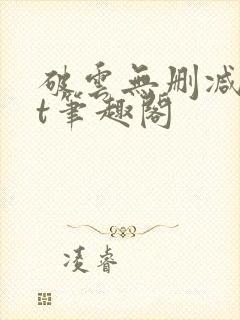 破雲無刪减
t筆趣閣
凌睿